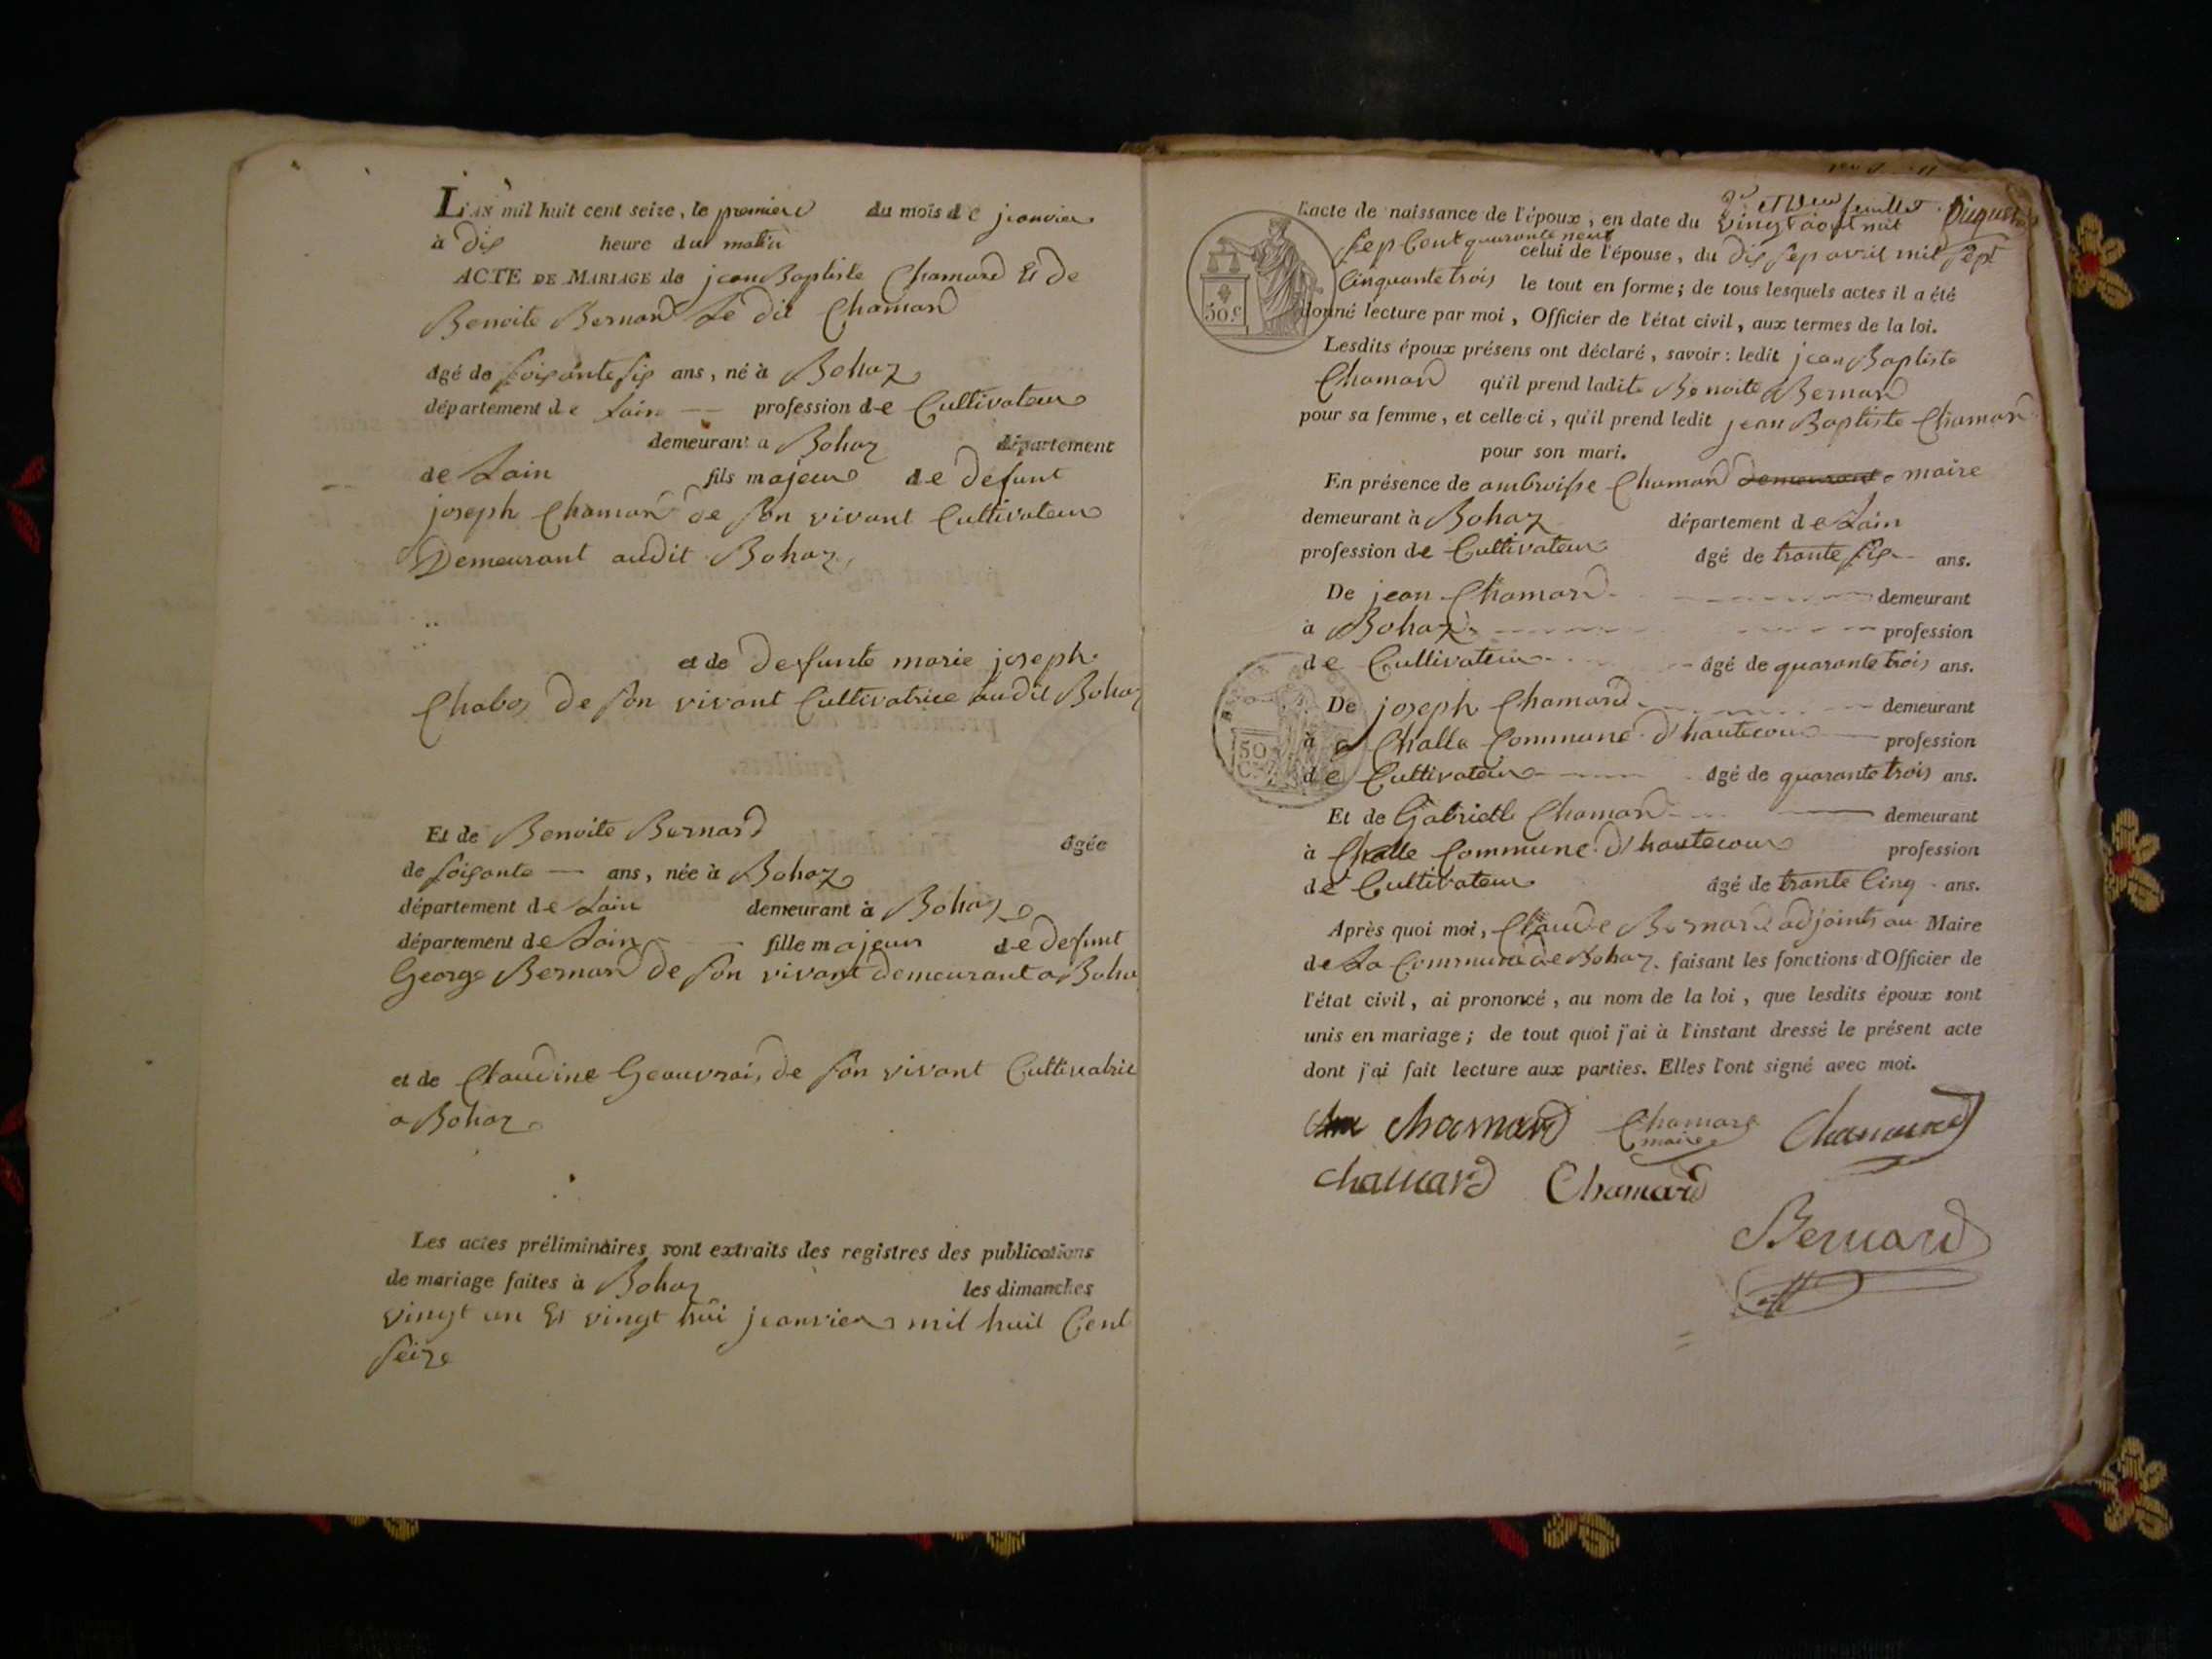 L'an mil huit cent seize, le premiere du mois de jeanvier
à dis heure du matin
ACTE DE MARIAGE de jean Baptiste Chamard Et de
Benoite Bernard Le dit Chamard
âgé de soisante sis ans, né à Bohaz
département de Lain profession de Cultivateur
demeurant a Bohaz département
de Lain fils majeur de defunt
joseph Chamard de son vivant Cultivateur
Demeurant audit Bohaz
et de defunte marie joseph
Chabos de son vivant Cultivatrice audit Bohaz
Et de Benoite Bernard âgée
de soisante ans, née à Bohaz
département de Lain demeurant à Bohaz
département de Lain fille majeur de defunt
George Bernard de son vivant demeurant a Boha
et de Claudine Geauvrais de son vivant Cultivatrice
a Bohaz
Les actes préliminaires sont extraits des registres des publications
de mariage faites à Bohaz les dimanches
vingt un Et vingt huit jeanvier mil huit Cent
seize
et feuillet
L'acte de naissance de l'époux, en date du vingt aout mil
sep Cent quarante neuf celui de l'épouse, du dis sep avril mil sept
Cinquante trois le tout en forme; de tous lesquels actes il a été
donné lecture par moi, Officier de l'état civil, aux termes de la loi.
Lesdits époux présens ont déclaré, savoir: ledit jean Baptiste
Chamard qu'il prend ladite Benoite Bernard
pour sa femme, et celle-ci, qu'il prend ledit jean Baptiste Chamard
pour son mari.
En présence de ambroisse Chamard demeurant maire
demeurant à Bohaz département de Lain
profession de Cultivateur âgé de trante sis ans.
De jean Chamard demeurant
à Bohaz profession
de Cultivateur âgé de quarante trois ans.
De joseph Chamard demeurant
à a Challe Commune d'hautecour profession
de Cultivateur âgé de quarante trois ans.
Et de Gabrielle Chamard demeurant
à Challe Commune d'hautecour profession
de Cultivateur âgé de trante Cinq ans.
Après quoi moi, Claude Bernard adjoints au Maire
de La Commune de Bohaz faisant les fonctions d'Officier de
l'état civil, ai prononcé, au nom de la loi, que lesdits époux sont
unis en mariage; de tout quoi j'ai à l'instant dressé le présent acte
dont j'ai fait lecture aux parties. Elles l'ont signé avec moi.
chamard Chamard maire Chamard
chamard Chamard
Bernard
50.c
50
C.